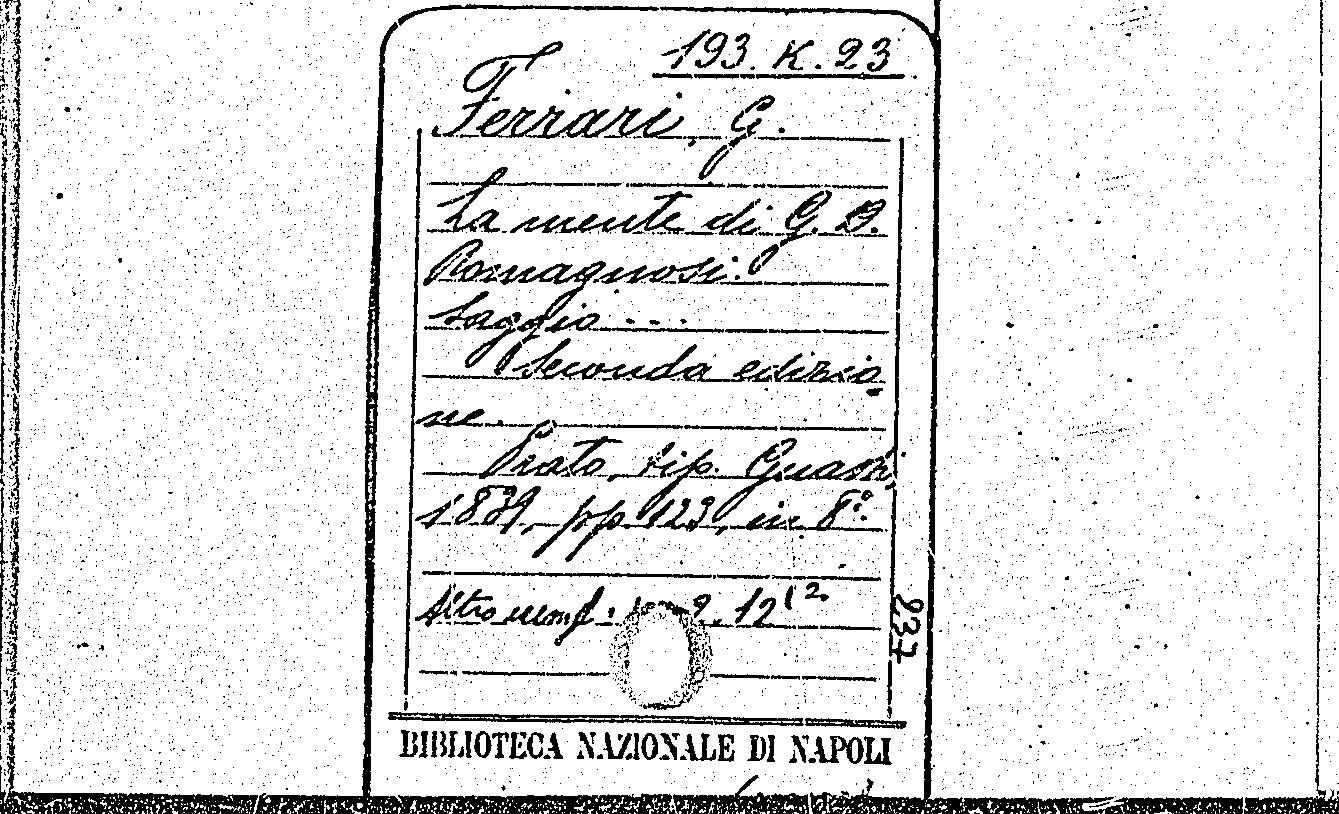 193. K. 23
Ferrari, G.
La mente di G. D.
Romagnosi.
Saggio ...
Seconda edizio
ne.
Prato, tip. Guasti,
1839, pp. 123, in 8°.
Altro esempl: 12
237
BIBLIOTECA NAZIONALE DI NAPOLI